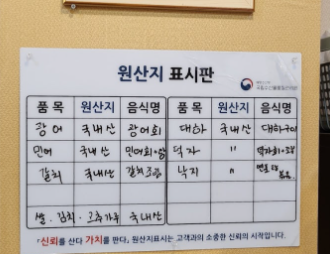 원산지 표시판
품 목 원산지 음식명 품 목 원산지 음식명
광어 국내산 광어회 대하 국내산 대하구이
민어 국내산 민어회 덕자 〃
갈치 국내산 갈치조림 낙지 〃
쌀. 김치. 고추가루 국내산
「신뢰를 산다 가치를 판다」 원산지표시는 고객과의 소중한 신뢰의 시작입니다.